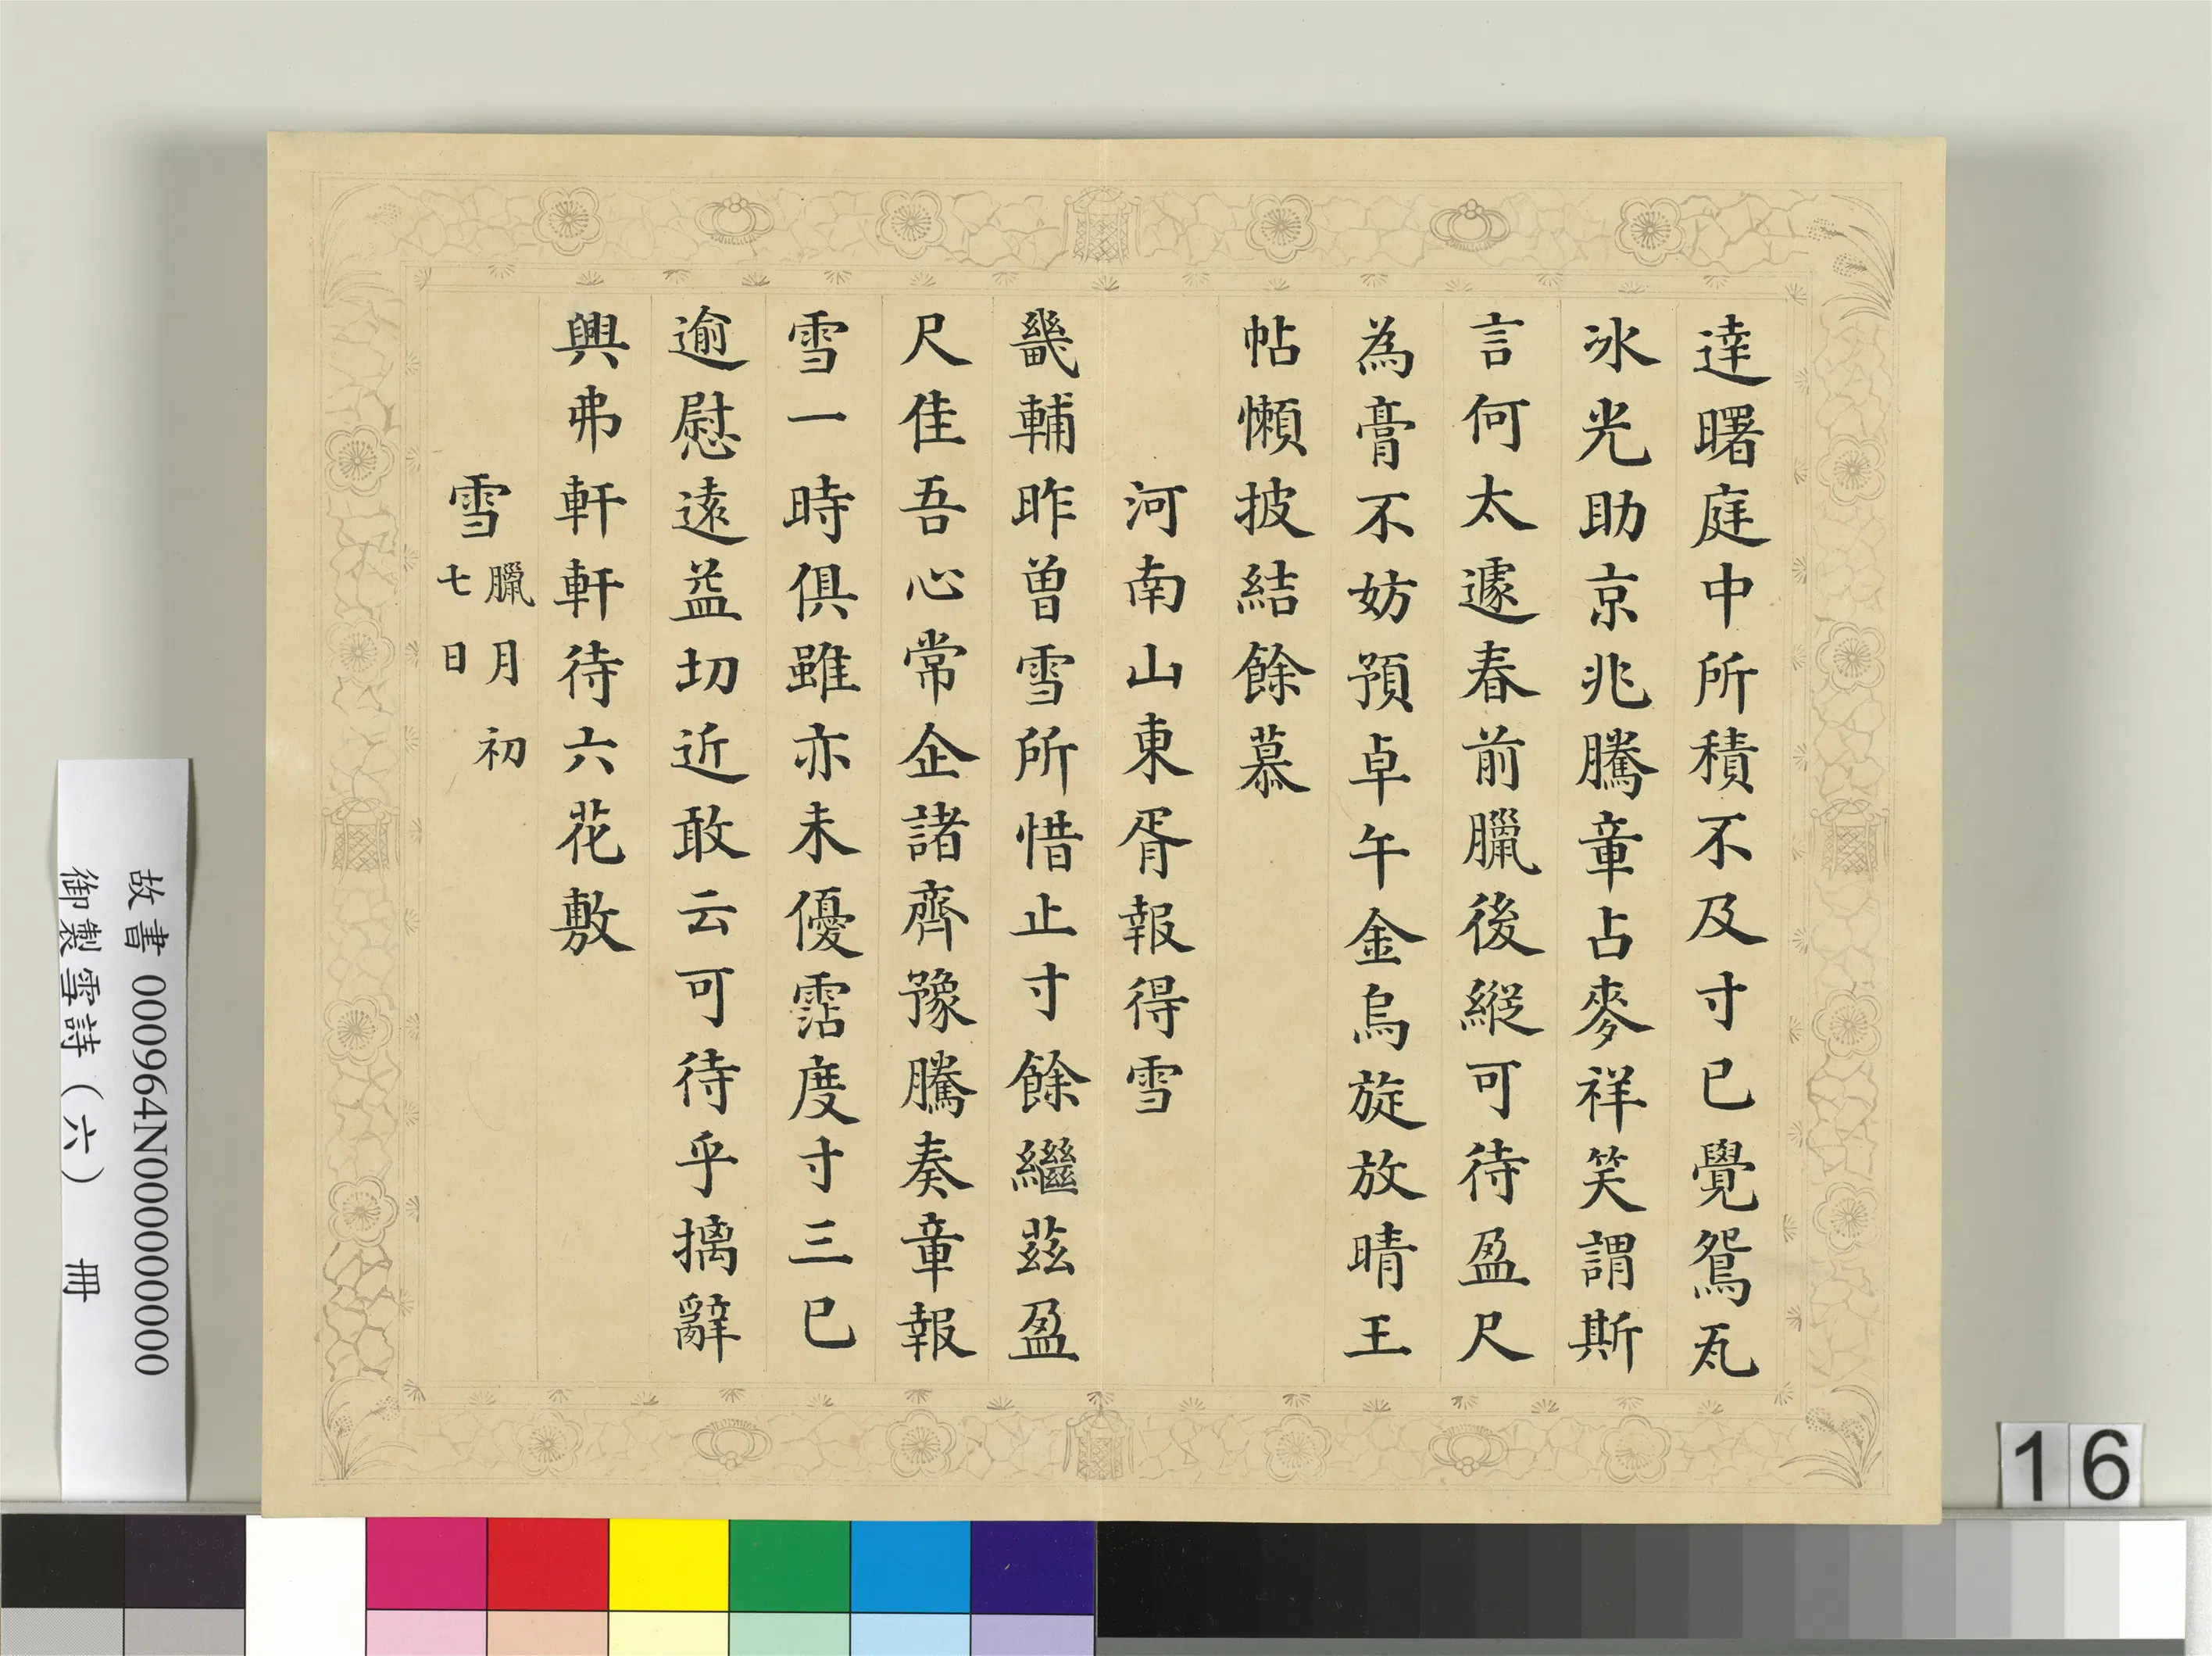 達曙庭中所積不及寸已覺鴛瓦
冰光助京兆騰章占麥祥笑謂斯
言何太遽春前臘後縱可待盈尺
為膏不妨預卓午金烏旋放晴王
帖懶披結餘慕
河南山東胥報得雪
畿輔昨曾雪所惜止寸餘繼茲盈
尺佳吾心常企諸齊豫騰奏章報
雪一時俱雖亦未優霑度寸三已
逾慰遠益切近敢云可待乎摛辭
興弗軒軒待六花敷
雪臘月初
七日
故書 000964N000000000
御製雪詩（六） 冊
16